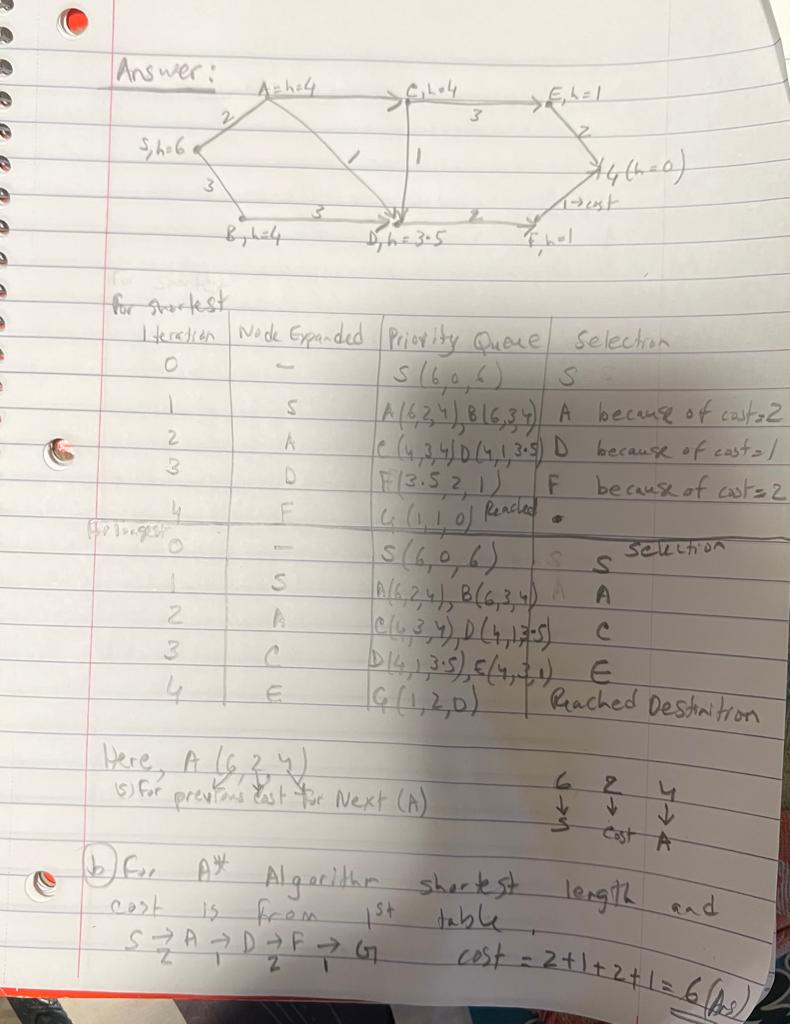 Answer:
A=h=4
C,h=4
E,h=1
2
3
2
S,h=6
1
1
G(h=0)
3
3
2
1→cost
B,h=4
D,h=3.5
F,h=1
For shortest
Iteration Node Expanded Priority Queue Selection
0 - S(6,0,6) S
1 S A(6,2,4),B(6,3,4) A because of cost=2
2 A C(4,3,4)D(4,1,3.5) D because of cost=1
3 D F(3.5,2,1) F because of cost=2
4 F G(1,1,0) Reached
For longest
Selection
0 - S(6,0,6) S
1 S A(6,2,4),B(6,3,4) A
2 A C(4,3,4),D(4,1,3.5) C
3 C D(4,1,3.5),E(4,3,1) E
4 E G(1,2,0) Reached Destinition
Here, A(6,2,4)
(S)For previous cost for Next (A)
6 2 4
↓ ↓ ↓
S cost A
b) For A* Algorithm shortest length and
cost is from 1st table.
S→A→D→F→G cost = 2+1+2+1=6(Ans)
2 1 2 1